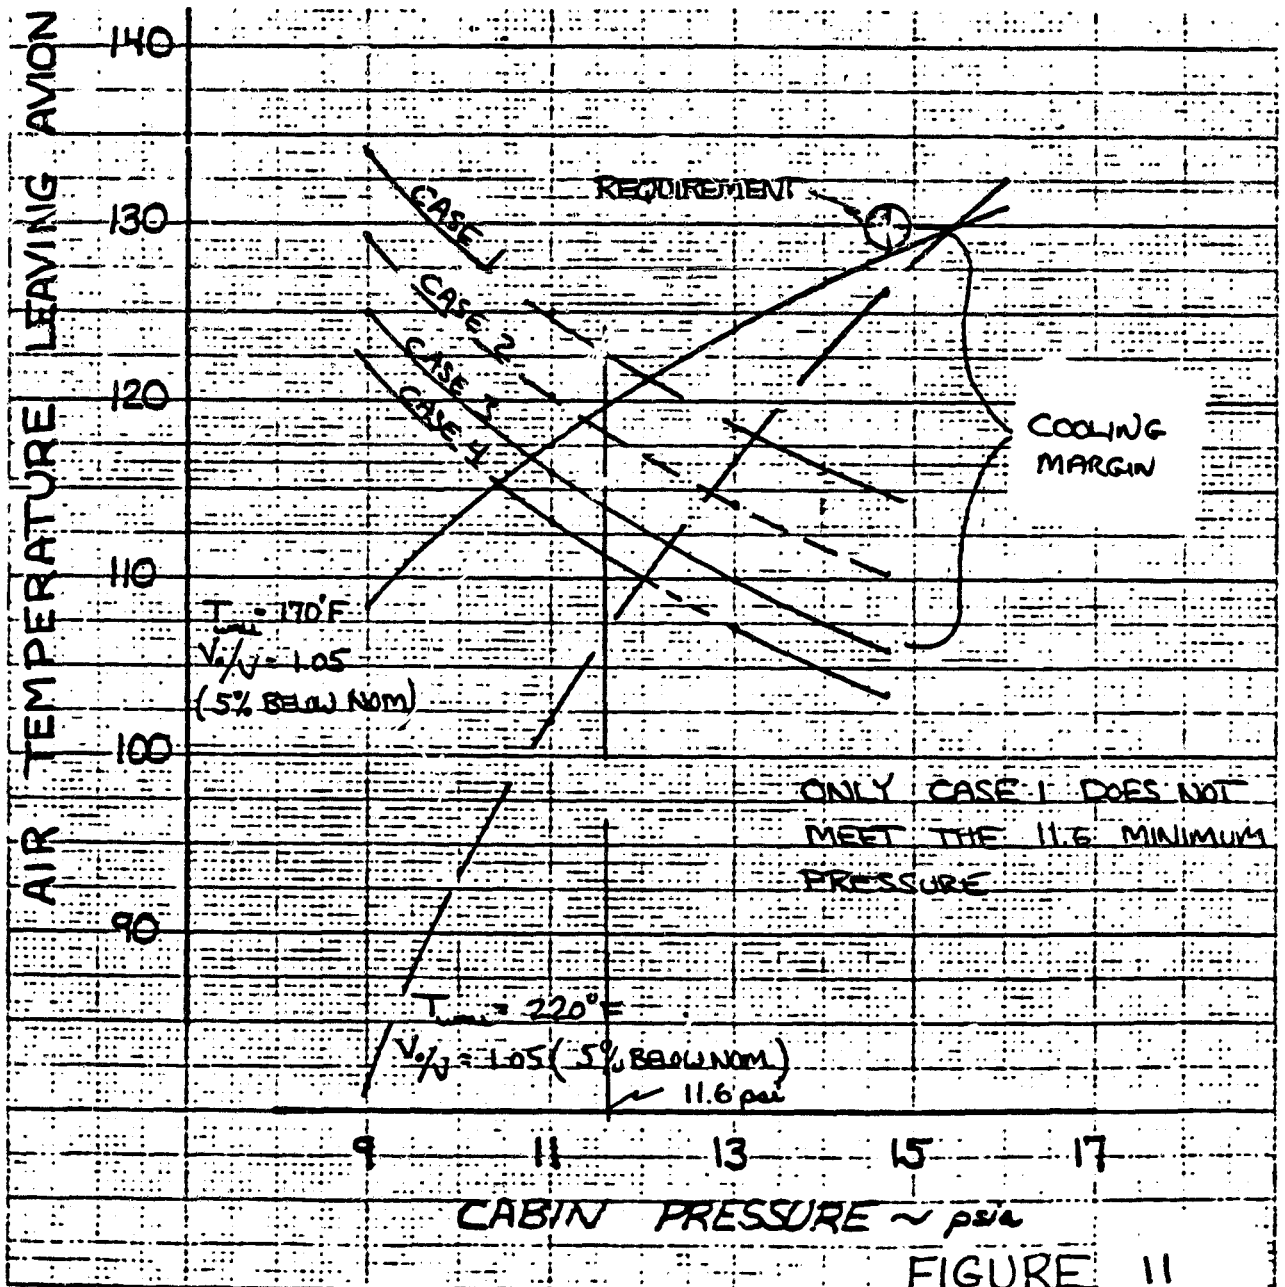 AIR TEMPERATURE LEAVING AVION
140
130
120
110
100
90
CASE 1
CASE 2
CASE 3
CASE 4
REQUIREMENT
COOLING
MARGIN
T wall = 170°F
V₀/V = 1.05
(5% BELOW NOM)
ONLY CASE 1 DOES NOT
MEET THE 11.6 MINIMUM
PRESSURE
T wall = 220°F
V₀/V = 1.05 (5% BELOW NOM)
11.6 psi
9 11 13 15 17
CABIN PRESSURE ~ psia
FIGURE 11